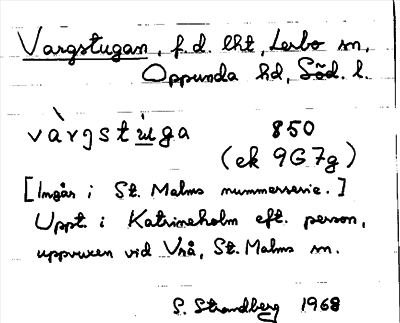 Vargstugan, f.d. lht, Lerbo sn,
Oppunda hd, Söd. l.
vàrgstùga 850
(ek 9G7g)
[Ingår i St. Malms nummerserie.]
Uppt. i Katrineholm eft. person,
uppvuxen vid Vrå, St. Malms sn.
S. Strandberg 1968